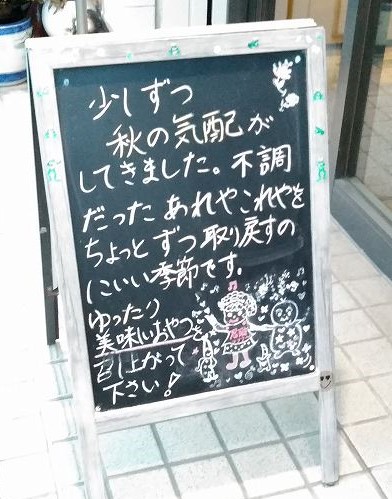 少しずつ
秋の気配が
してきました。不調
だった あれやこれやを
ちょっと ずつ取り戻すの
にいい季節です.
ゆったり
美味しいおやつを
召し上がって
下さい!